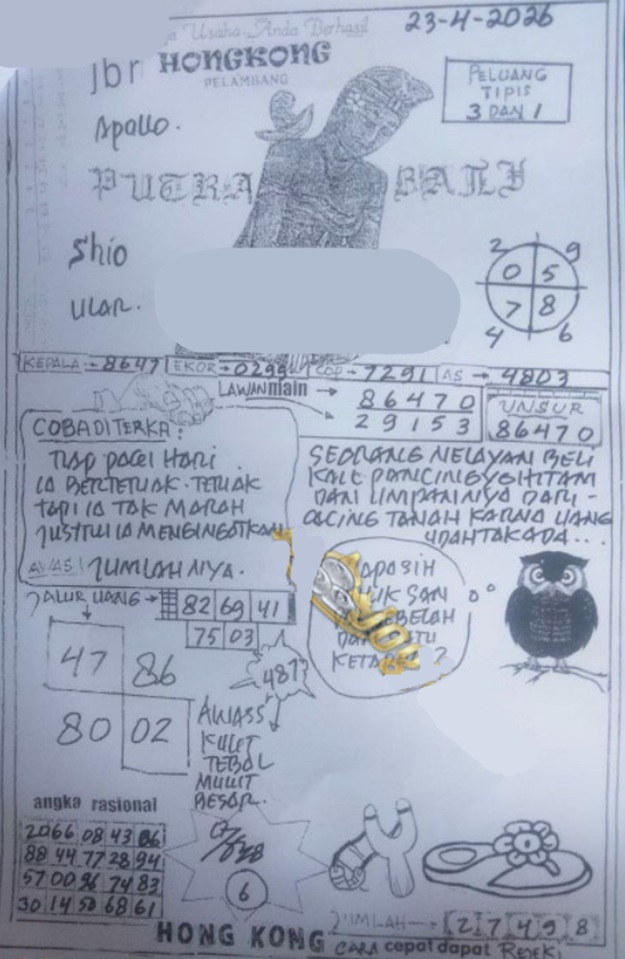 Usaha Anda Berhasil
23-4-2026
HONGKONG
PELAMBANG
PELUANG
TIPIS
3 DAN 1
Apollo.
PUTRA BALI
Shio
ULAR.
2 9
0 5
7 8
4 6
KEPALA - 8647 EKOR - 0299 COP - 7291 AS → 4803
LAWAN main → 86470
29153
UNSUR
86470
COBA DITERKA:
TIAP PAGI HARI
IA BERTERIAK-TERIAK
TAPI IA TAK MARAH
JUSTRU IA MENGINGATKAN
AWAS! JUMLAHNYA.
SEORANG NELAYAN BELI
KAIL PANCING YG HITAM
DAN UMPANNYA DARI -
CACING TANAH KARNA UANG
UDAH TAK ADA...
JALUR UANG → 82 69 41
75 03
47 86
80 02
487?
AWASS
KULIT
TEBAL
MULUT
BESAR.
APA SIH
KETAPEL ?
angka rasional
2066 08 43 86
88 44 77 28 94
57 00 96 74 83
30 14 50 68 61
6
JUMLAH → 2 7 4 9 8
HONG KONG CARA cepat dapat REJEKI